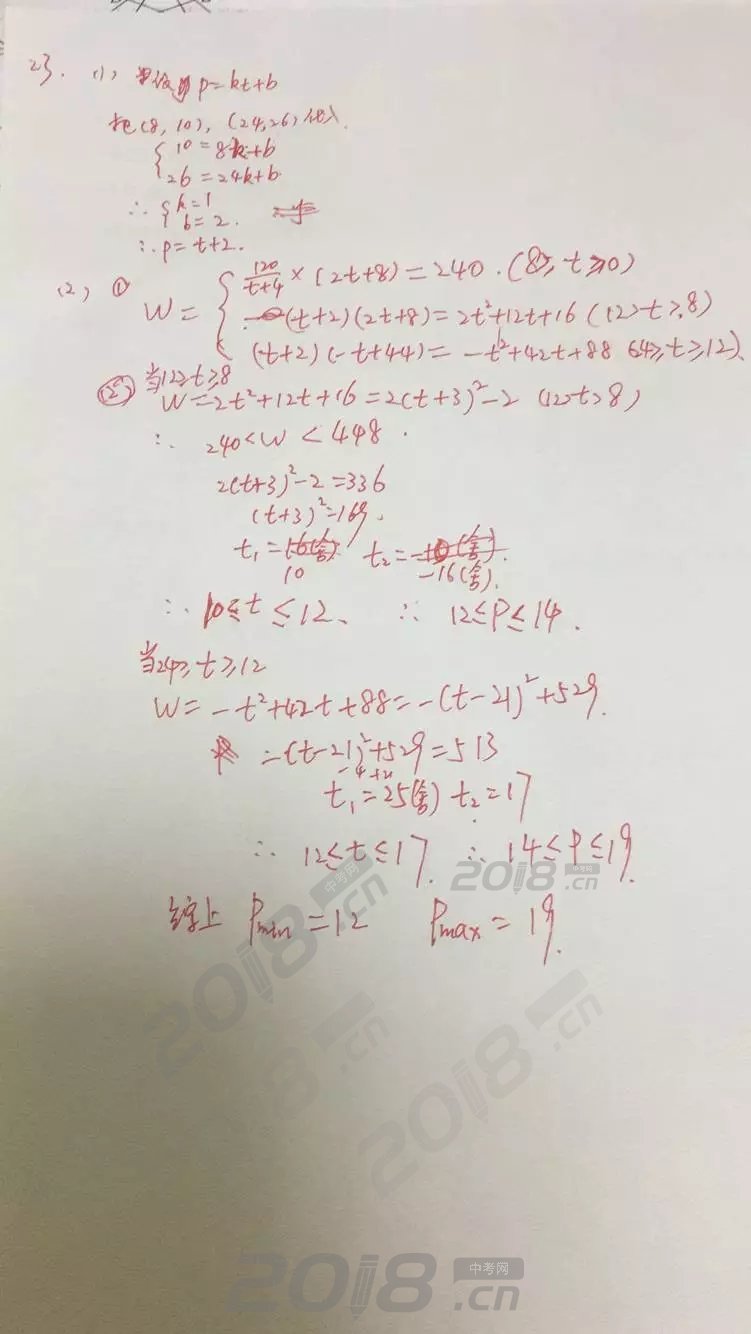 23. (1) 设 p=kt+b
把(8,10),(24,26)代入.
{10=8k+b
26=24k+b
∴{k=1
b=2.
∴p=t+2.
(2) ① W={120/t+4×(2t+8)=240.(8≥t≥0)
(t+2)(2t+8)=2t²+12t+16(12>t≥8)
(t+2)(-t+44)=-t²+42t+88 (24≥t≥12)
② 当12≥t≥8
W=2t²+12t+16=2(t+3)²-2 (12>t>8)
∴ 240<W<448.
2(t+3)²-2=336
(t+3)²=169.
t₁=16(舍) t₂=-10(舍).
10 -16(舍).
∴ 10≤t≤12、 ∴ 12≤P≤14.
当24≥t≥12
W=-t²+42t+88=-(t-21)²+529.
-(t-21)²+529=513
-4+21
t₁=25(舍) t₂=17
∴ 12≤t≤17. ∴ 14≤P≤19.
综上 Pmin=12 Pmax=19.
中考网
2018.cn
中考网
2018.cn
2018.cn
中考网
2018.cn